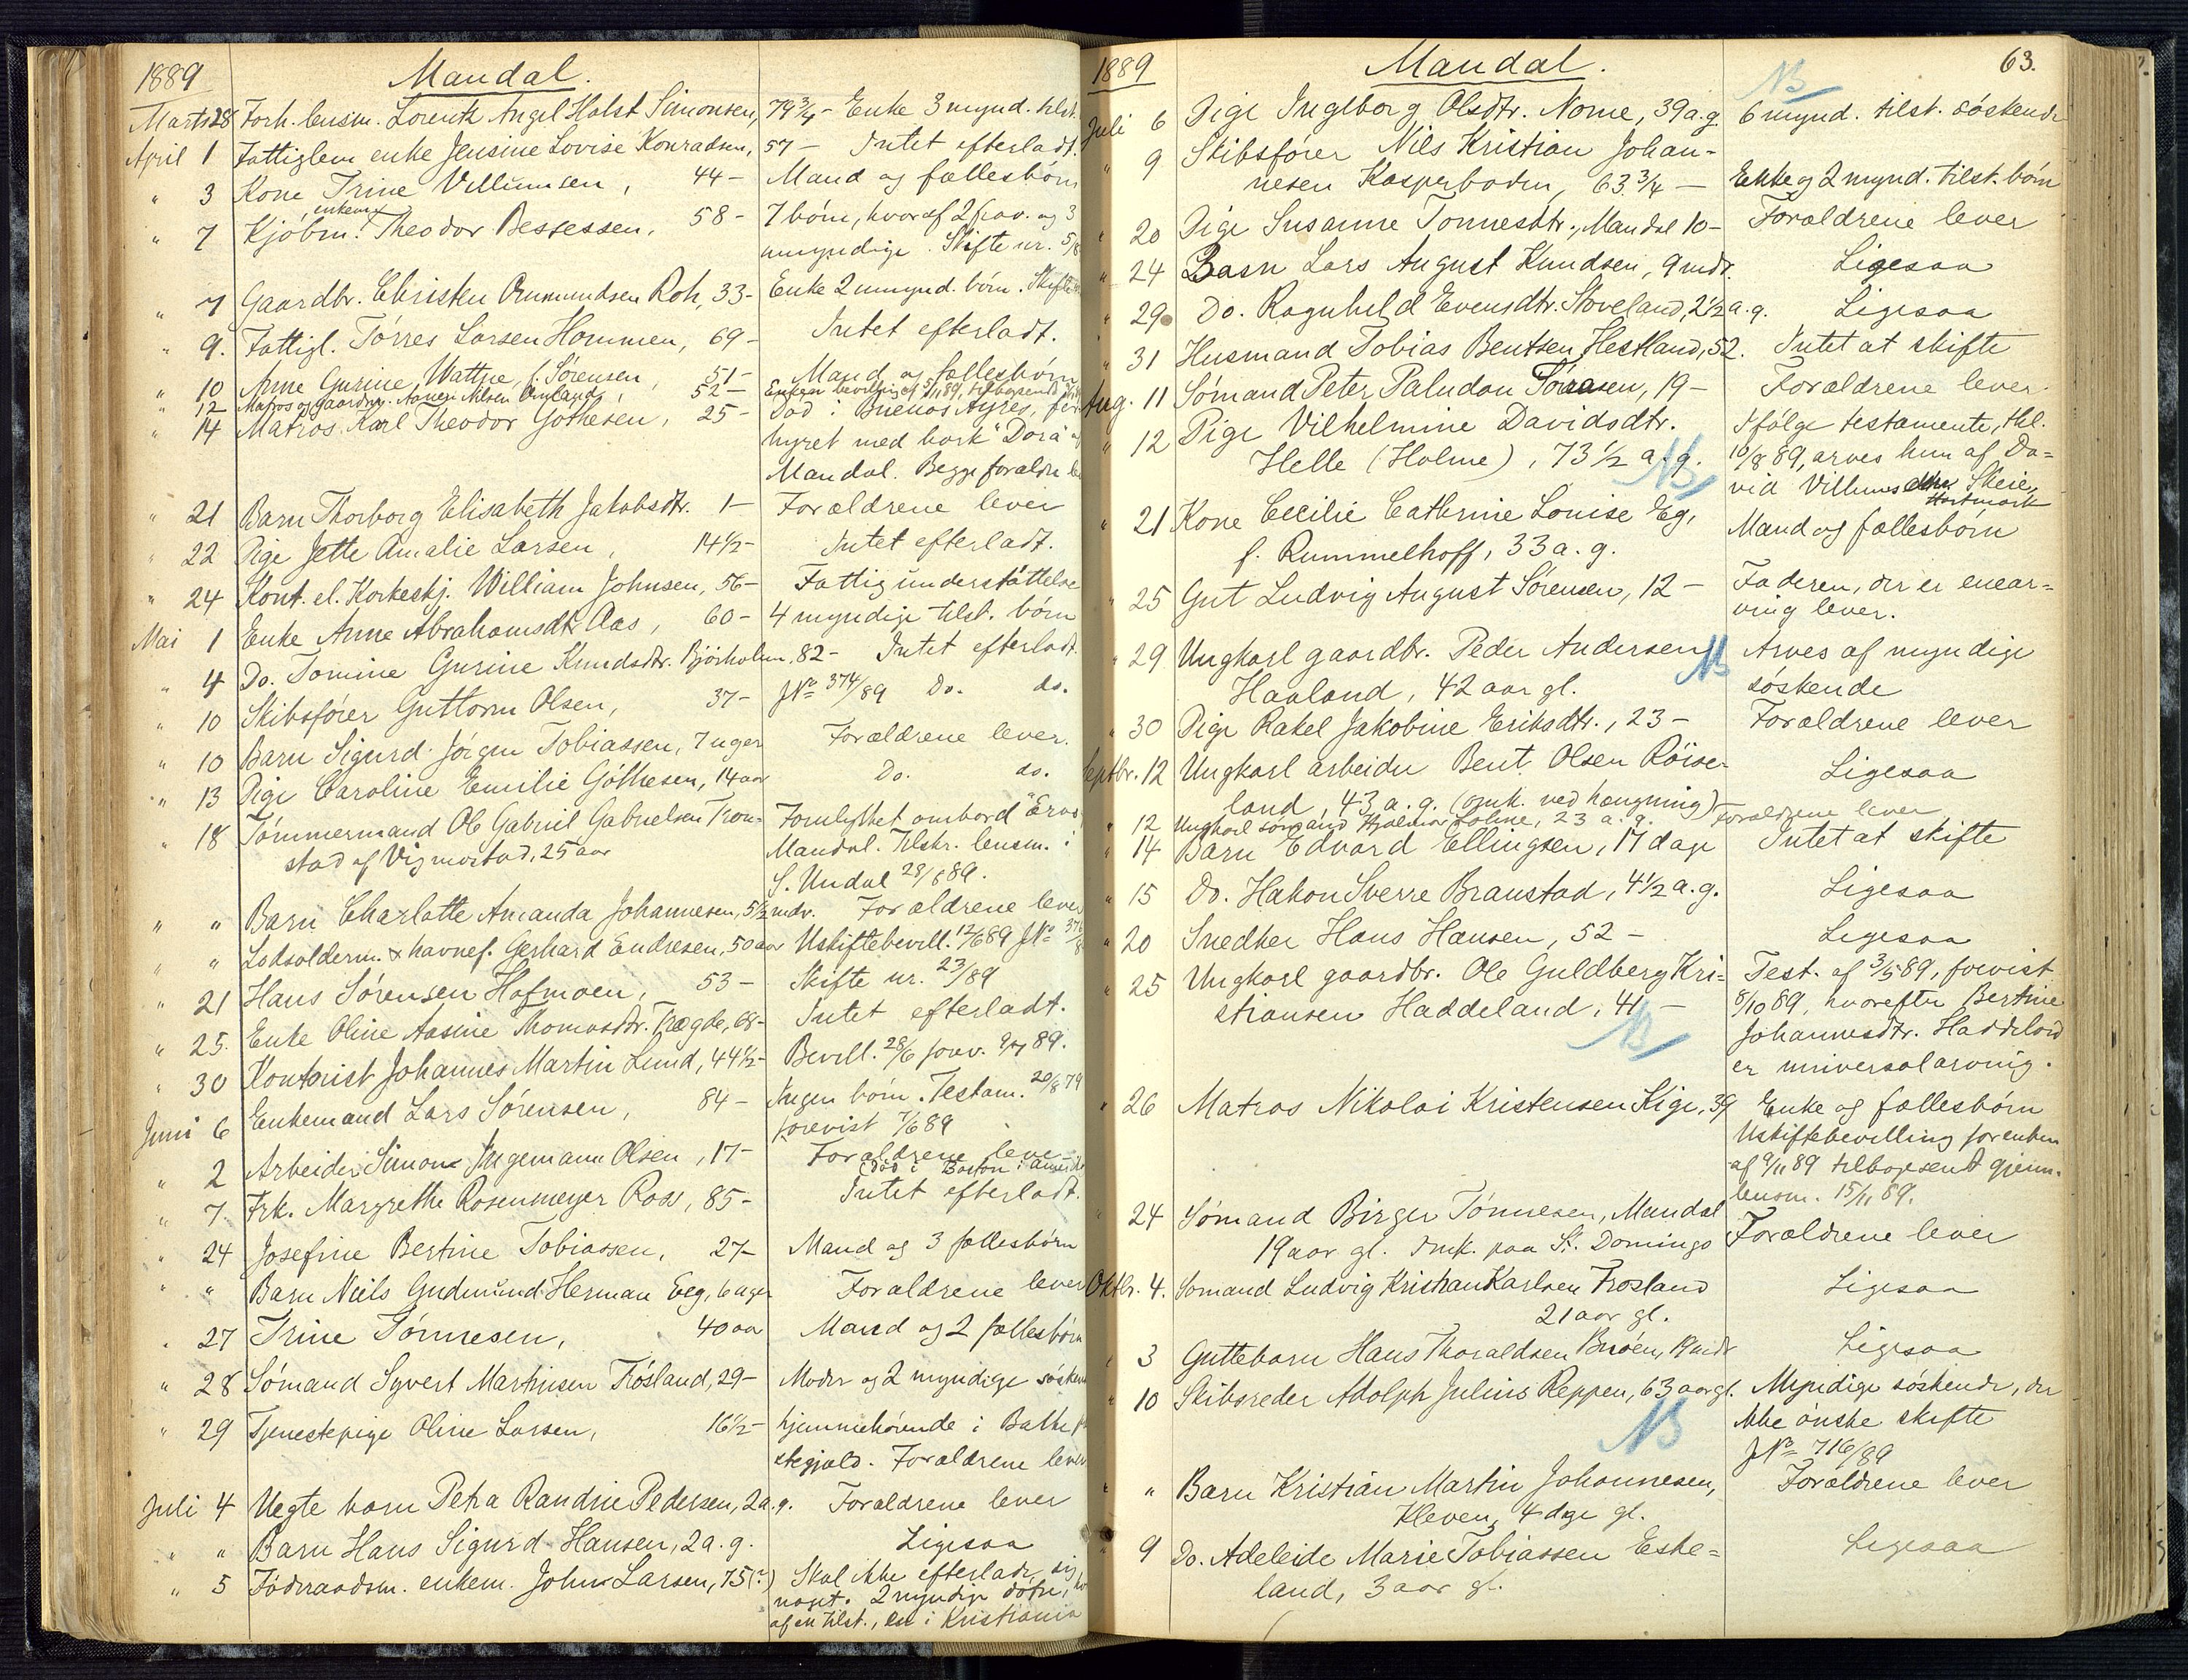 1889 Mandal.
Marts 28 Forh. lensm. Lorentz Angel Holst Simonsen, 79 3/4 - Enke 3 mynd. tilst.
April 1 Fattiglem enke Jensine Lovise Konradsen, 57 - Intet efterladt.
" 3 Kone Trine Villumsen, 44 - Mand og fællesbörn
" 7 Kjöbm. enkem. Theodor Bessesen, 58 - 7 börn, hvoraf 2 frav. og 3
umyndige. Skifte nr. 5/8
" 7 Gaardbr. Christen Ommundsen Roh, 33 - Enke 2 umynd. börn. Skifte
" 9. Fattigl. Törres Larsen Hommen, 69 - Intet efterladt.
" 10 Anne Gurine Wattne, f. Sörensen, 51 - Mand og fællesbörn
" 12 Matros og gaardm. Aanen Nilsen Omland, 52 - Enken bevilling af 5/11 89, tilbagesendt
" 14 Matros Karl Theodor Göthesen, 25 - Död i Buenos Ayres, for-
hyret med bark "Dora" af
Mandal. Begge forældre
" 21 Barn Thorborg Elisabeth Jakobsdtr. 1 - Forældrene lever
" 22 Pige Jette Amalie Larsen, 14 1/2 - Intet efterladt.
" 24 Kont. el. Korkeskj. William Johnsen, 56 - Fattigunderstöttelse
Mai 1 Enke Anne Abrahamsdtr. Aas, 60 - 4 myndige tilst. börn
" 4 Do. Tomine Gurine Knudsdtr. Bjórholm, 82 - Intet efterladt.
" 10 Skibsförer Guttorm Olsen, 37 - J No 374/89 Do. do.
" 10 Barn Sigurd Jörgen Tobiassen, 7 uger Forældrene lever.
" 13 Pige Caroline Emilie Göthesen, 14 aar Do. do.
" 18 Tömmermand Ole Gabriel Gabrielsen Tron- Fornlykket ombord "Eros"
stad af Vigmostad, 25 aar Mandal. Tilskr. lensm. i
S. Undal 28/5 89.
" " Barn Charlotte Amanda Johannesen, 5 1/2 mdr. Forældrene lever
" " Lodsolderm. & havnef. Gerhard Endresen, 50 aar Uskiftebevill. 12/6 89 J No 376/8
" 21 Hans Sörensen Hofmoen, 53 - Skifte nr. 23/89
" 25. Enke Oline Aasine Thomasdtr. Trægde, 68 - Intet efterladt.
" 30 Kontorist Johannes Martin Lund, 44 1/2 - Bevill. 28/6 forev. 9/7 89.
Juni 6 Enkemand Lars Sörensen, 84 - Ingen börn. Testam. 20/8 79
forevist 7/6 89
" 2 Arbeider Simon Ingemann Olsen, 17 - Forældrene leve
(död i Boston i Amerika
" 7 Frk. Margrethe Rosenmeyer Ross, 85 - Intet efterladt.
" 24 Josefine Bertine Tobiassen, 27 - Mand og 3 fællesbörn
" " Barn Niels Gudmund Herman Eeg, 6 uger Forældrene lever
" 27 Trine Tönnesen, 40 aa Mand og 2 fællesbörn
" 28 Sömand Syvert Martinsen Frösland, 29 - Moder og 2 myndige sösken
" 29 Tjenestepige Oline Larsen, 16 1/2 - hjemmehörende i Bakke
stegjæld. Forældrene lever
Juli 4 Uegte barn Petra Randine Pedersen, 2 a. g. Forældrene lever
" " Barn Hans Sigurd Hansen, 2 a. g. Ligesaa
" 5 Föderaadsm. enkem. John Larsen, 75 (?) Skal ikke efterlade sig
noget. 2 myndige dötre,
af en tilst., en i Kristiania
1889 Mandal. 63.
NB
Juli 6 Pige Ingeborg Olsdtr. Nome, 39 a. g. 6 mynd. tilst. söskende
" 9 Skibsförer Nils Kristian Johan-
nesen Kasperboden, 63 3/4 - Enke og 2 mynd. tilst. börn
" 20 Pige Susanne Tonnesdtr., Mandal 10 - Forældrene lever
" 24 Barn Lars August Knudsen, 9 mdr. Ligesaa
" 29 Do. Ragnhild Evensdtr. Stoveland, 2 1/2 a. g. Ligesaa
" 31 Husmand Tobias Bentsen Hestland, 52. Intet at skifte
Aug. 11 Sömand Peter Paludan Sörensen, 19 - Forældrene lever.
" 12 Pige Vilhelmine Davidsdtr. Ifölge testamente, thl.
Helle (Holme), 73 1/2 a. g. NB 10/8 89, arves hun af Da-
vid Villums Skeie,
Hartmark
" 21 Kone Cecilie Cathrine Louise Eg, Mand og fællesbörn
f. Rummelhoff, 33 a. g.
" 25 Gut Ludvig August Sörensen, 12 - Faderen, der er enear-
ving lever.
" 29 Ungkarl gaardbr. Peder Andersen NB Arves af myndige
Haaland, 42 aar gl. söskende
" 30 Pige Rakel Jakobine Eriksdtr., 23 - Forældrene lever
Septbr. 12 Ungkarl arbeider Bent Olsen Röise- Ligesaa
land, 43 a. g. (omk. ved hængning)
" 12 Ungkarl sömand Hjalmar Salme, 23 a. g. Forældrene lever
" 14 Barn Edvard Ellingsen, 17 dage Intet at skifte
" 15 Do. Hakon Sverre Braustad, 4 1/2 a. g. Ligesaa
" 20 Snedker Hans Hansen, 52 - Ligesaa
" 25 Ungkarl gaardbr. Ole Guldberg Kri- Test. af 3/5 89, forevist
stiansen Haddeland, 41 - 8/10 89, hvorefter Bertine
NB Johannesdtr. Haddeland
er universalarving.
" 26 Matros Nikolai Kristensen Kige, 39 Enke og fællesbörn
Uskiftebevilling for enken
af 9/11 89 tilbagesendt gjenn.
lensm. 15/11 89.
" 24 Sömand Birger Tönnesen, Mandal Forældrene lever
19 aar gl. Omk. paa St. Domingo
Oktbr. 4. Sömand Ludvig Kristian Karlsen Frosland Ligesaa
21 aar gl.
" 3 Guttebarn Hans Thoraldsen Bröen, 19 mdr Ligesaa
" 10 Skibsreder Adolph Julius Reppen, 63 aar gl. Myndige söskende, der
NB ikke önske skifte
J No 716/89
" " Barn Kristian Martin Johannesen, Forældrene lever
Kleven, 4 dage gl.
" 9 Do. Adeleide Marie Tobiassen Eske- Ligesaa
land, 3 aar gl.